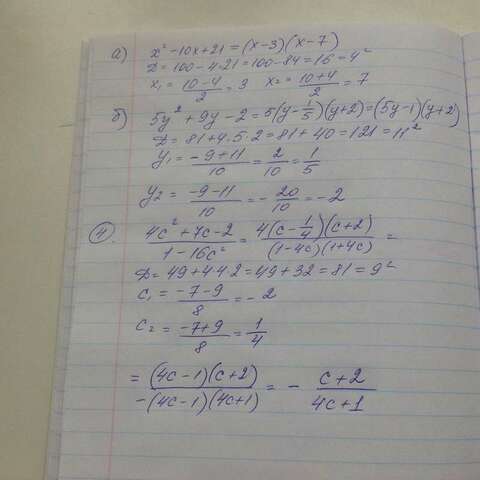 а) x² - 10x + 21 = (x - 3)(x - 7)
D = 100 - 4·21 = 100 - 84 = 16 = 4²
x₁ = (10 - 4)/2 = 3 x₂ = (10 + 4)/2 = 7
б) 5y² + 9y - 2 = 5(y - 1/5)(y + 2) = (5y - 1)(y + 2)
D = 81 + 4·5·2 = 81 + 40 = 121 = 11²
y₁ = (-9 + 11)/10 = 2/10 = 1/5
y₂ = (-9 - 11)/10 = -20/10 = -2
4. (4c² + 7c - 2)/(1 - 16c²) = 4(c - 1/4)(c + 2)/((1 - 4c)(1 + 4c)) =
D = 49 + 4·4·2 = 49 + 32 = 81 = 9²
c₁ = (-7 - 9)/8 = -2
c₂ = (-7 + 9)/8 = 1/4
= (4c - 1)(c + 2)/(-(4c - 1)(4c + 1)) = - (c + 2)/(4c + 1)